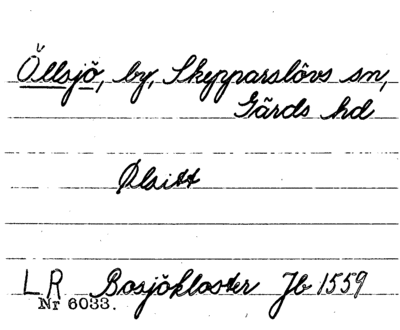 Öllsjö, by, Skepparslövs sn,
Gärds hd
Ølsitt
L R Bosjökloster Jb 1559
Nr 6033.